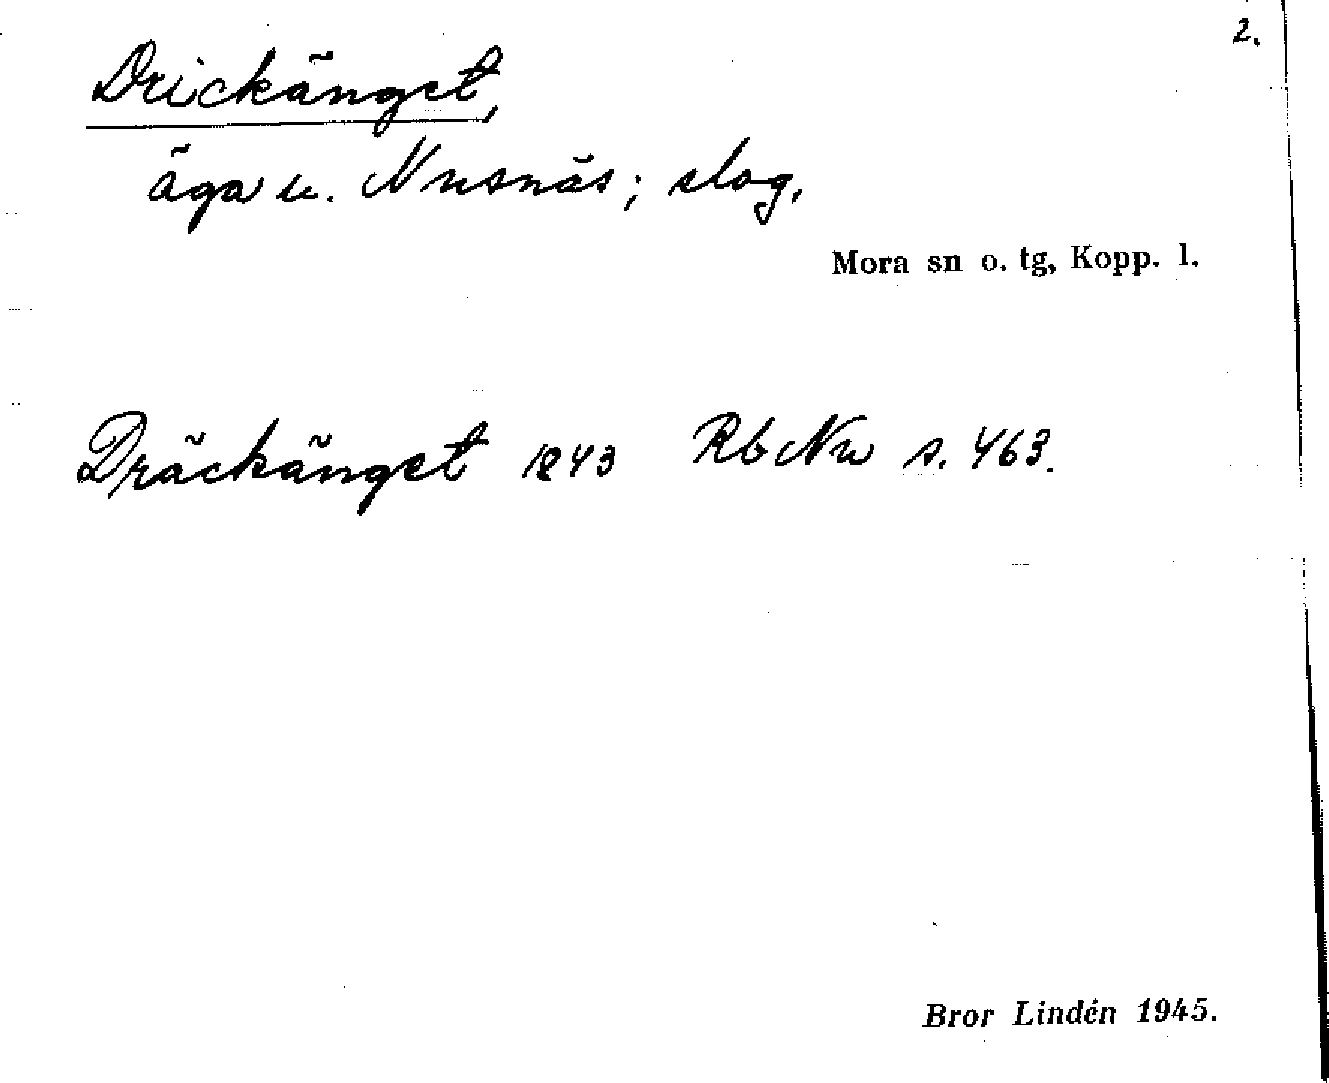 2.
Drickänget,
äga u. Nusnäs; slog.
Mora sn o. tg, Kopp. l.
Dräckänget 1843 RbNu s. 463.
Bror Lindén 1945.